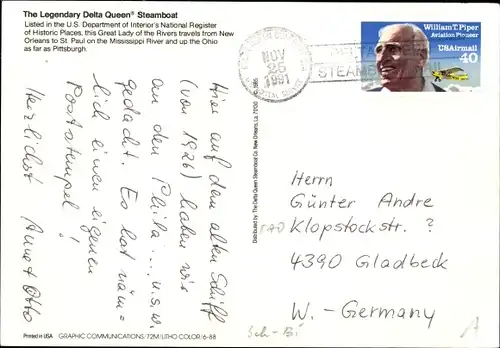 The Legendary Delta Queen® Steamboat
Listed in the U.S. Department of Interior's National Register
of Historic Places, this Great Lady of the Rivers travels from New
Orleans to St. Paul on the Mississippi River and up the Ohio
as far as Pittsburgh.
NOV
25
1991
STEAMBOAT
William T. Piper
Aviation Pioneer
USAirmail
40
Hier auf dem alten Schiff
(von 1926) haben wir
an den Phila... u.s.w.
gedacht. Es hat näm=
lich einen eigenen
Poststempel!
Herzlichst Annet Otto
Distributed by The Delta Queen Steamboat Co. New Orleans, La. 70130
Herrn
Günter Andre
Klopstockstr. ?
4390 Gladbeck
W.-Germany
Sch-Bi
A
Printed in USA GRAPHIC COMMUNICATIONS/72M/LITHO COLOR/6-88